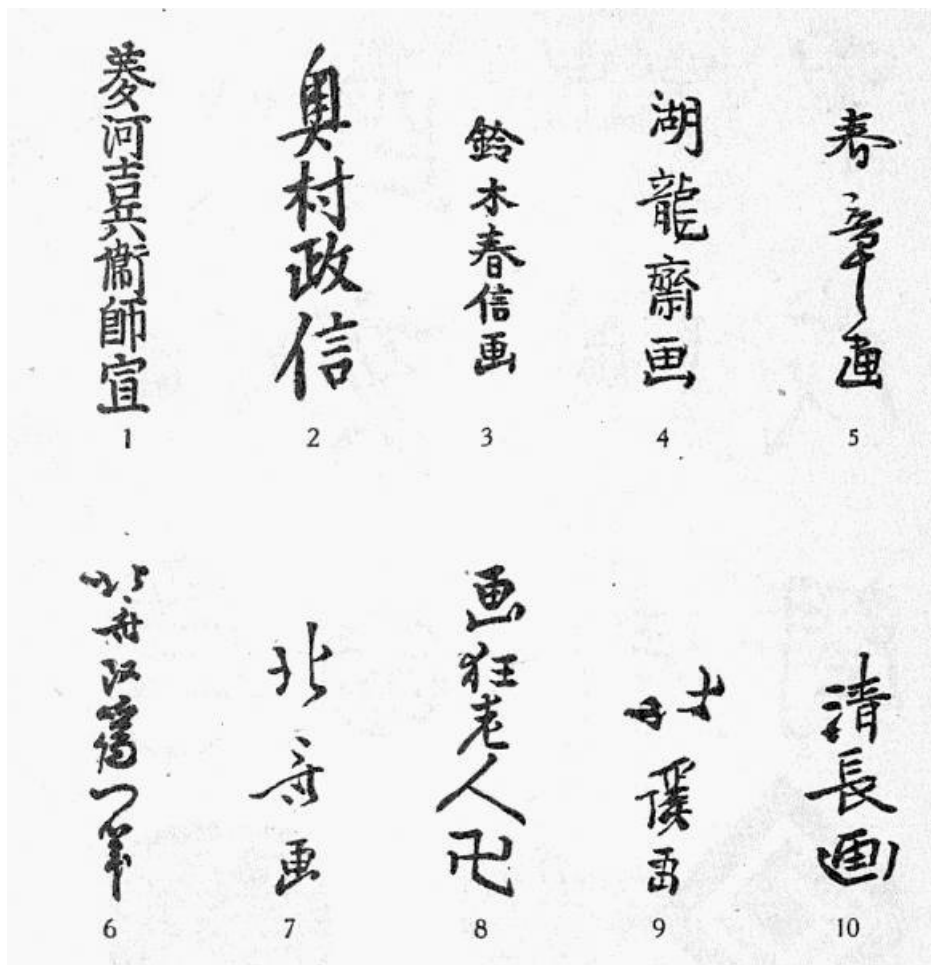 菱河吉兵衞師宣
1
奥村政信
2
鈴木春信画
3
湖龍齋画
4
春章画
5
北斎改爲一筆
6
北斎画
7
画狂老人卍
8
北溪画
9
清長画
10